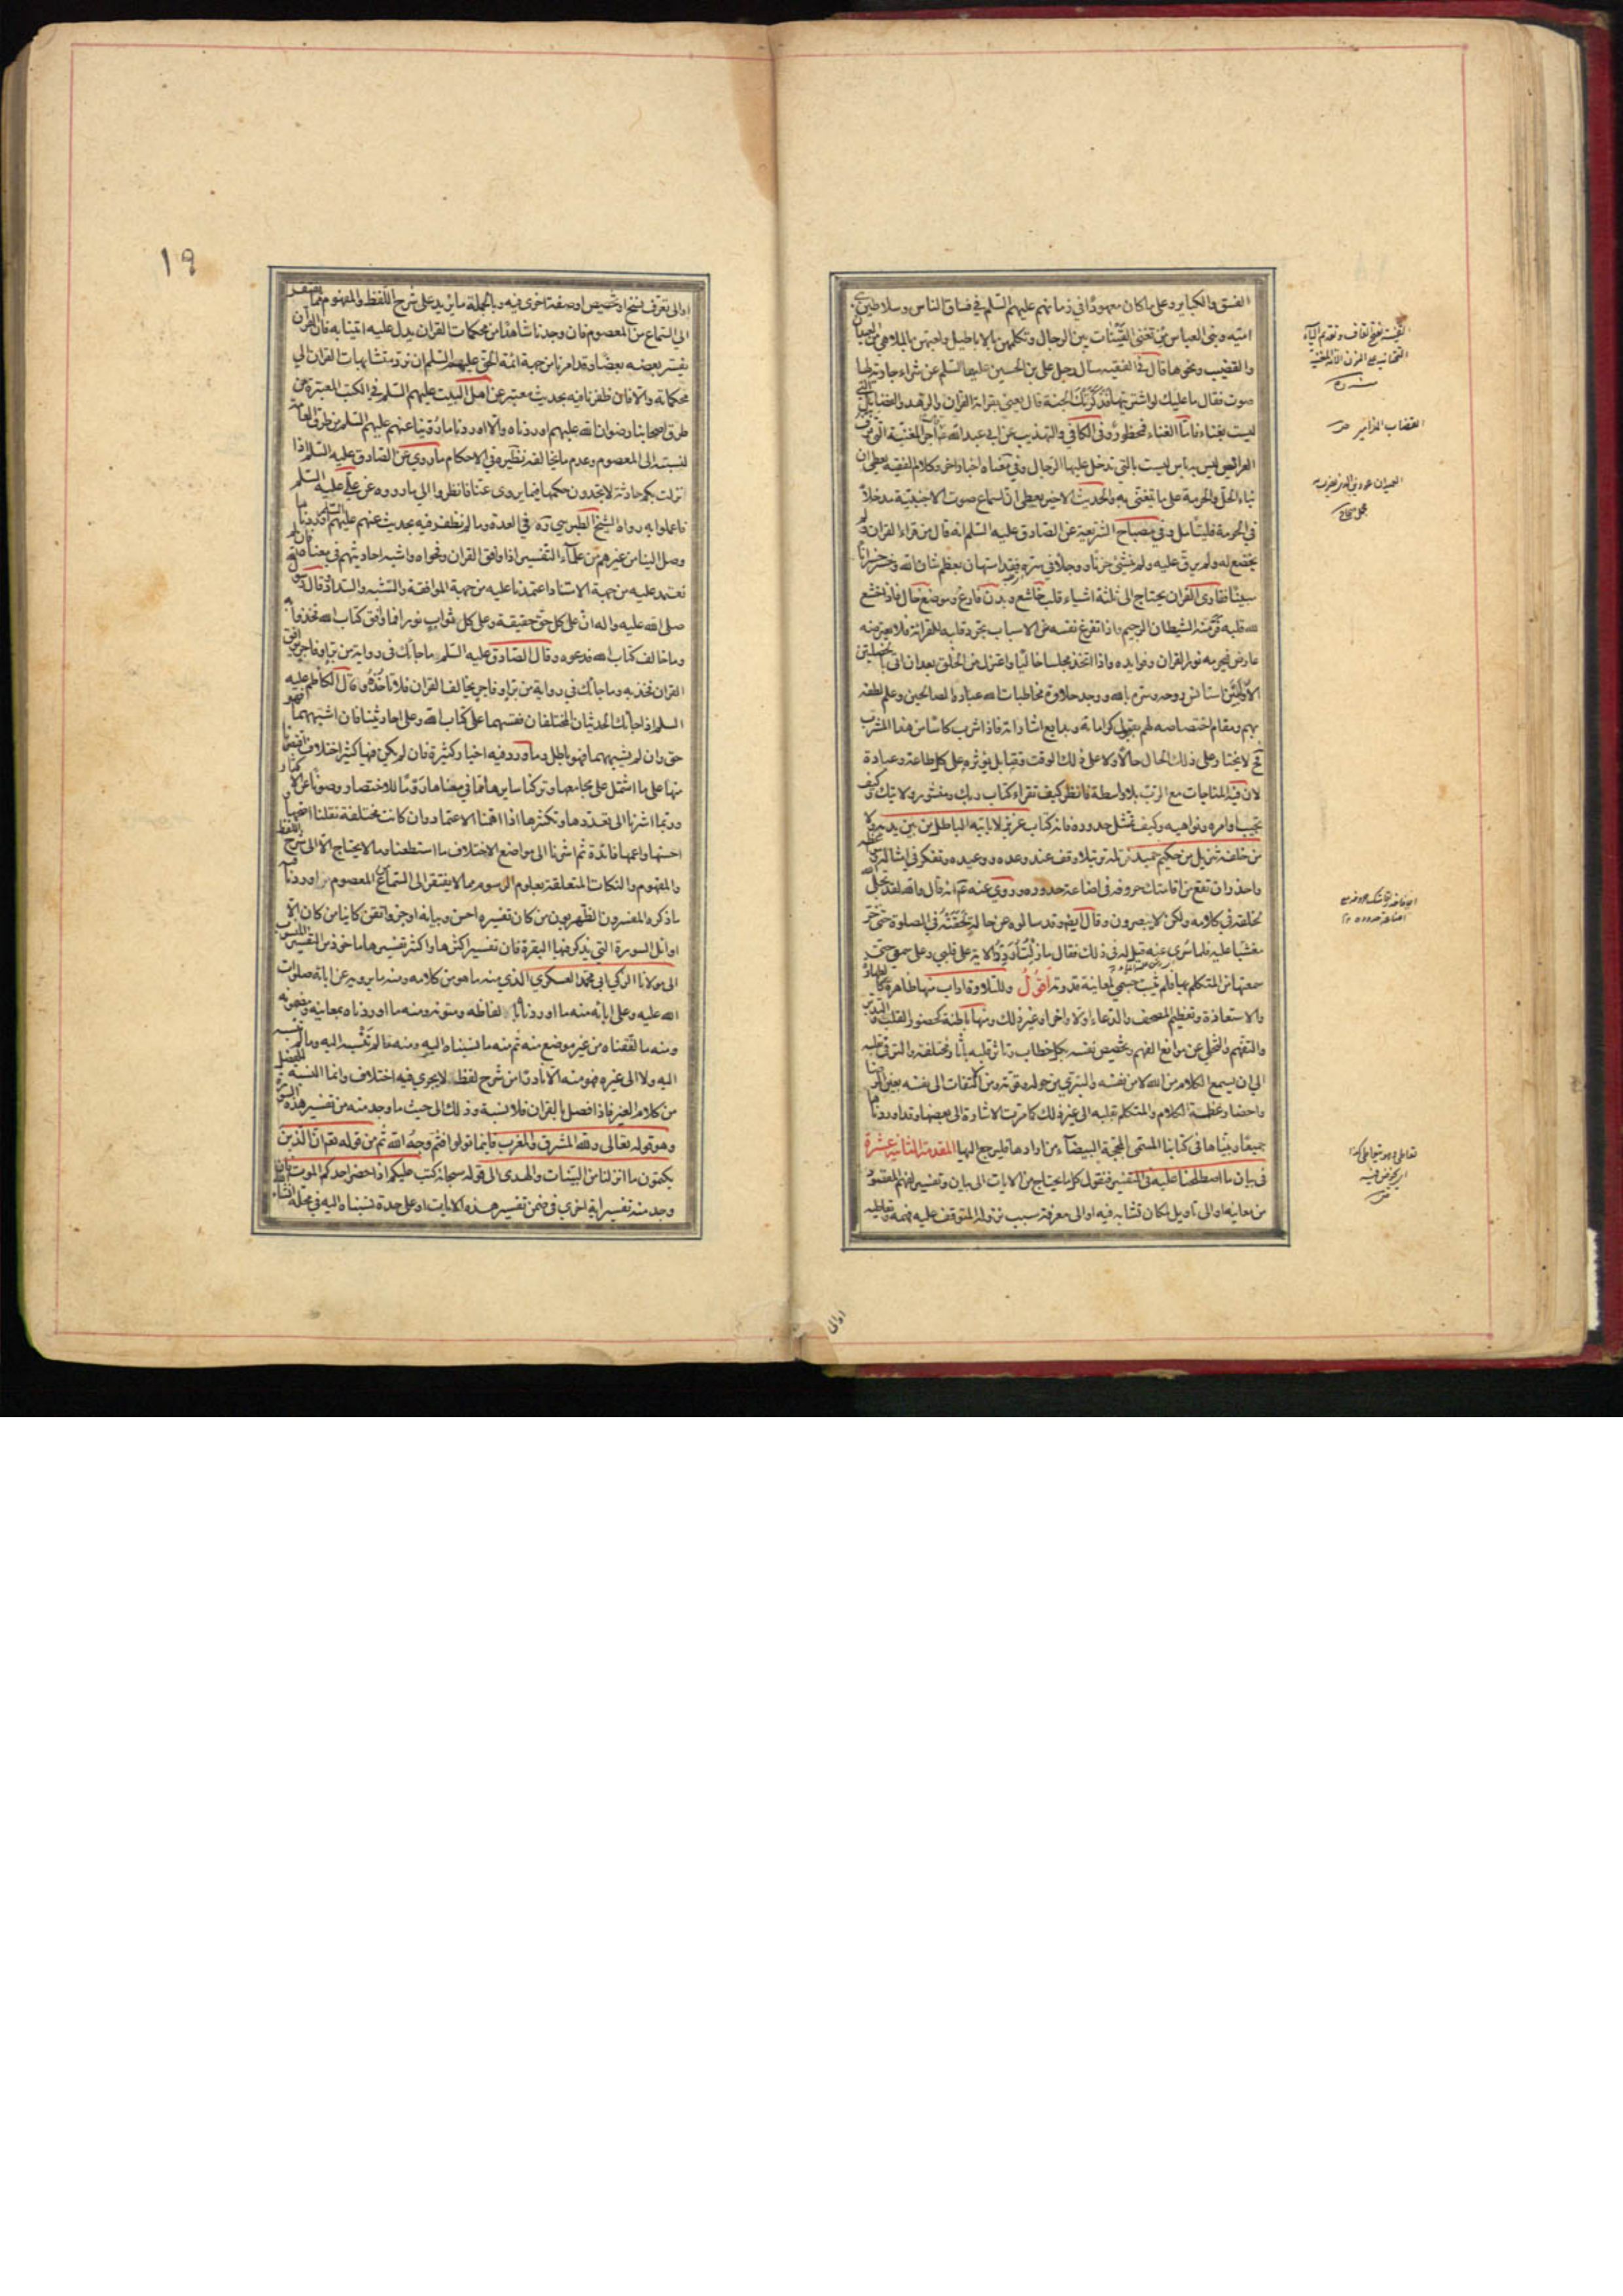 الفسق والكباير وعلى ما كان معهودا في زمانهم عليهم السلم في فساق الناس وسلاطين بني
امية وبني العباس من تغني القينات بين الرجال وتكلمهن بالاباطيل ولعبهن بالملاهي من العيدان
والقضيب ونحوها قال في الفقيه سأل رجل علي بن الحسين عليهما السلم عن شراء جارية لها
صوت فقال ما عليك لو اشتريتها فذكرتك الجنة قال يعني بقراءة القران والزهد والفضايل التي
ليست بغناء فاما الغناء فمحظور وفي الكافي والتهذيب عن ابي عبد الله ع قال اجر المغنية التي تزف
العرايس ليس به باس ليست بالتي تدخل عليها الرجال وفي معناه اخبار اخر وكلام الفقيه يعطي ان
بناء الحل والحرمة على ما يتغنى به والحديث الاخير يعطي ان لسماع صوت الاجنبية مدخلا
في الحرمة فليتامل وفي مصباح الشريعة عن الصادق عليه السلم انه قال من قراء القران ولم
يخضع له ولم يرق عليه ولم ينشئ حزنا ووجلا في سره فقد استهان بعظم شان الله وخسر خسرانا
مبينا فقارئ القران يحتاج الى ثلثة اشياء قلب خاشع وبدن فارغ وموضع خال فاذا خشع
لله قلبه فر منه الشيطان الرجيم واذا تفرغ نفسه من الاسباب تجرد قلبه للقراءة فلا يعترضه
عارض فيحرمه نور القران وفوايده واذا اتخذ مجلسا خاليا واعتزل من الخلق بعد ان اتى بالخصلتين
الاوليين استانس روحه وسره بالله ووجد حلاوة مخاطبات الله عباده الصالحين وعلم لطفه
بهم ومقام اختصاصه لهم بقبول كراماته وبدايع اشاراته فاذا شرب كاسا من هذا المشرب
ح لا يختار على ذلك الحال حالا ولا على ذلك الوقت وقتا بل يؤثره على كل طاعة وعبادة
لان فيه المناجات مع الرب بلا واسطة فانظر كيف تقراء كتاب ربك ومنشور ولايتك وكيف
تجيب اوامره ونواهيه وكيف تمتثل حدوده فانه كتاب عزيز لا ياتيه الباطل من بين يديه ولا
من خلفه تنزيل من حكيم حميد فرتله ترتيلا وقف عند وعده ووعيده وتفكر في امثاله ومواعظه
واحذر ان تقع من اقامتك حروفه في اضاعة حدوده وروي عنه ع انه قال والله لقد تجلى الله
لخلقه في كلامه ولكن لا يبصرون وقال ايضا وقد سالوه عن حالة لحقته في الصلوة حتى خر
مغشيا عليه فلما سري عنه قيل له في ذلك فقال ما زلت اردد الاية على قلبي وعلى سمعي حتى
سمعتها من المتكلم بها فلم يثبت جسمي لمعاينة قدرته اقول وللتلاوة اداب منها ظاهرة كالطهارة
والاستعاذة وتعظيم المصحف والدعاء اولا واخرا وغير ذلك ومنها باطنة كحضور القلب والتدبر
والتفهم والتخلي عن موانع الفهم وتخصيص نفسه بكل خطاب وتاثر قلبه باثار مختلفة والترقي بقلبه
الى ان يسمع الكلام من الله لا من نفسه والتبري من حوله وقوته ومن الالتفات الى نفسه بعين الرضا
واحضار عظمة الكلام والمتكلم بقلبه الى غير ذلك كما مرت الاشارة الى بعضها وقد اوردناها
جميعا وبيناها في كتابنا المسمى بالمحجة البيضاء من ارادها فليرجع اليها المقدمة الثانية عشرة
في بيان ما اصطلحنا عليه في التفسير فنقول كل ما يحتاج من الايات الى بيان وتفسير لفهم المقصود
من معانيه او الى تاويل لمكان تشابه فيه او الى معرفة سبب نزوله المتوقف عليه فهمه وتعاطيه
القينة بفتح القاف وتقديم الياء
التحتانية على النون الامة المغنية
القصاب المزامير
العيدان عود
تعاطى
اوالى
١٩
او الى تعرف نسخ او تخصيص او صفة اخرى فيه وبالجملة ما يزيد على شرح اللفظ والمفهوم مما يفتقر
الى السماع من المعصوم فان وجدنا شاهدا من محكمات القران يدل عليه اتينا به فان القران
يفسر بعضه بعضا وقد امرنا من جهة ائمة الحق عليهم السلم ان نرد متشابهات القران الى
محكماته والا فان ظفرنا فيه بحديث معتبر عن اهل البيت عليهم السلم في الكتب المعتبرة من
طرق اصحابنا رضوان الله عليهم اوردناه والا اوردنا ما روينا عنهم عليهم السلم من طرق العامة
لنسبته الى المعصوم وعدم ما يخالفه نظيره في الاحكام ما روي عن الصادق عليه السلم اذا
انزلت بكم حادثة لا تجدون حكمها فيما يروى عنا فانظروا الى ما رووه عن علي عليه السلم
فاعملوا به رواه الشيخ الطبرسي ره في العدة وما لم نظفر فيه بحديث عنهم عليهم السلم اوردنا ما
وصل الينا من غيرهم من علماء التفسير اذا وافق القران وفحواه واشبه احاديثهم في معناه فان لم
نعتمد عليه من جهة الاستناد اعتمدنا عليه من جهة الموافقة والشبه والسداد قال رسول الله
صلى الله عليه واله ان على كل حق حقيقة وعلى كل ثواب نورا فما وافق كتاب الله فخذوا به
وما خالف كتاب الله فدعوه وقال الصادق عليه السلم ما جاءك في رواية من بر او فاجر يوافق
القران فخذ به وما جاءك في رواية من بر او فاجر يخالف القران فلا تاخذ به وقال الكاظم عليه
السلم اذا جاءك الحديثان المختلفان فقسهما على كتاب الله وعلى احاديثنا فان اشبههما فهو
حق وان لم يشبههما فهو باطل وما ورد فيه اخبار كثيرة فان لم يكن فيها كثير اختلاف اقتصرنا
منها على ما اشتمل على مجامعها وتركنا سايرها مما في معناها روما للاختصار وصونا عن الاكثار
وربما اشرنا الى تعددها وتكثرها اذا اهمنا الاعتماد وان كانت مختلفة نقلنا اصحها و
احسنها واعمها فائدة ثم اشرنا الى مواضع الاختلاف ما استطعنا وما لا يحتاج الا الى شرح اللفظ
والمفهوم والنكات المتعلقة بعلوم الرسوم مما لا يفتقر الى السماع من المعصوم اوردنا فيه
ما ذكره المفسرون الظاهريون من كان تفسيره احسن وبيانه اوجز واتقن كائنا من كان الا
اوائل السورة التي يذكر فيها البقرة فان تفسير اكثرها واكثر تفسيرها ماخوذ من التفسير المنسوب
الى مولانا الزكي ابي محمد العسكري الذي منه ما هو من كلامه ومنه ما يرويه عن ابائه صلوات
الله عليه وعلى ابائه منه ما اوردناه بالفاظه ومتونه ومنه ما اوردناه بمعانيه ومضمونه
ومنه ما لفقناه من غير موضع منه ثم منه ما نسبناه اليه ومنه ما لم ننسبه اليه وما لم ننسبه
اليه ولا الى غيره فهو منه الا نادرا من شرح لفظ لا يجري فيه اختلاف وانما النسبة للفصل
من كلام الغير فاذا افصل بالقران فلا نسبة وذلك الى حيث ما وجد منه من تفسير هذه السورة
وهو قوله تعالى ولله المشرق والمغرب فاينما تولوا فثم وجه الله ثم من قوله تعالى ان الذين
يكتمون ما انزلنا من البينات والهدى الى قوله سبحانه كتب عليكم اذا حضر احدكم الموت فان
وجد منه تفسير اية اخرى في ضمن تفسير هذه الايات او على حدة نسبناه اليه في محله انشاء الله